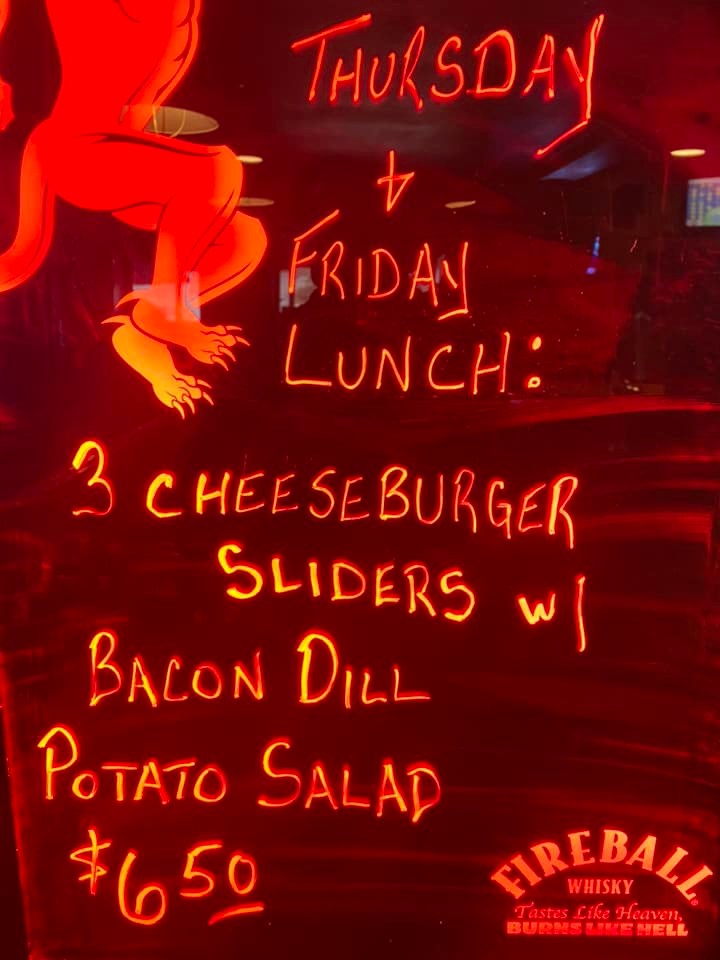 THURSDAY
+
FRIDAY
LUNCH:
3 CHEESEBURGER
SLIDERS w/
BACON DILL
POTATO SALAD
$6 50
FIREBALL
WHISKY
Tastes Like Heaven,
BURNS LIKE HELL